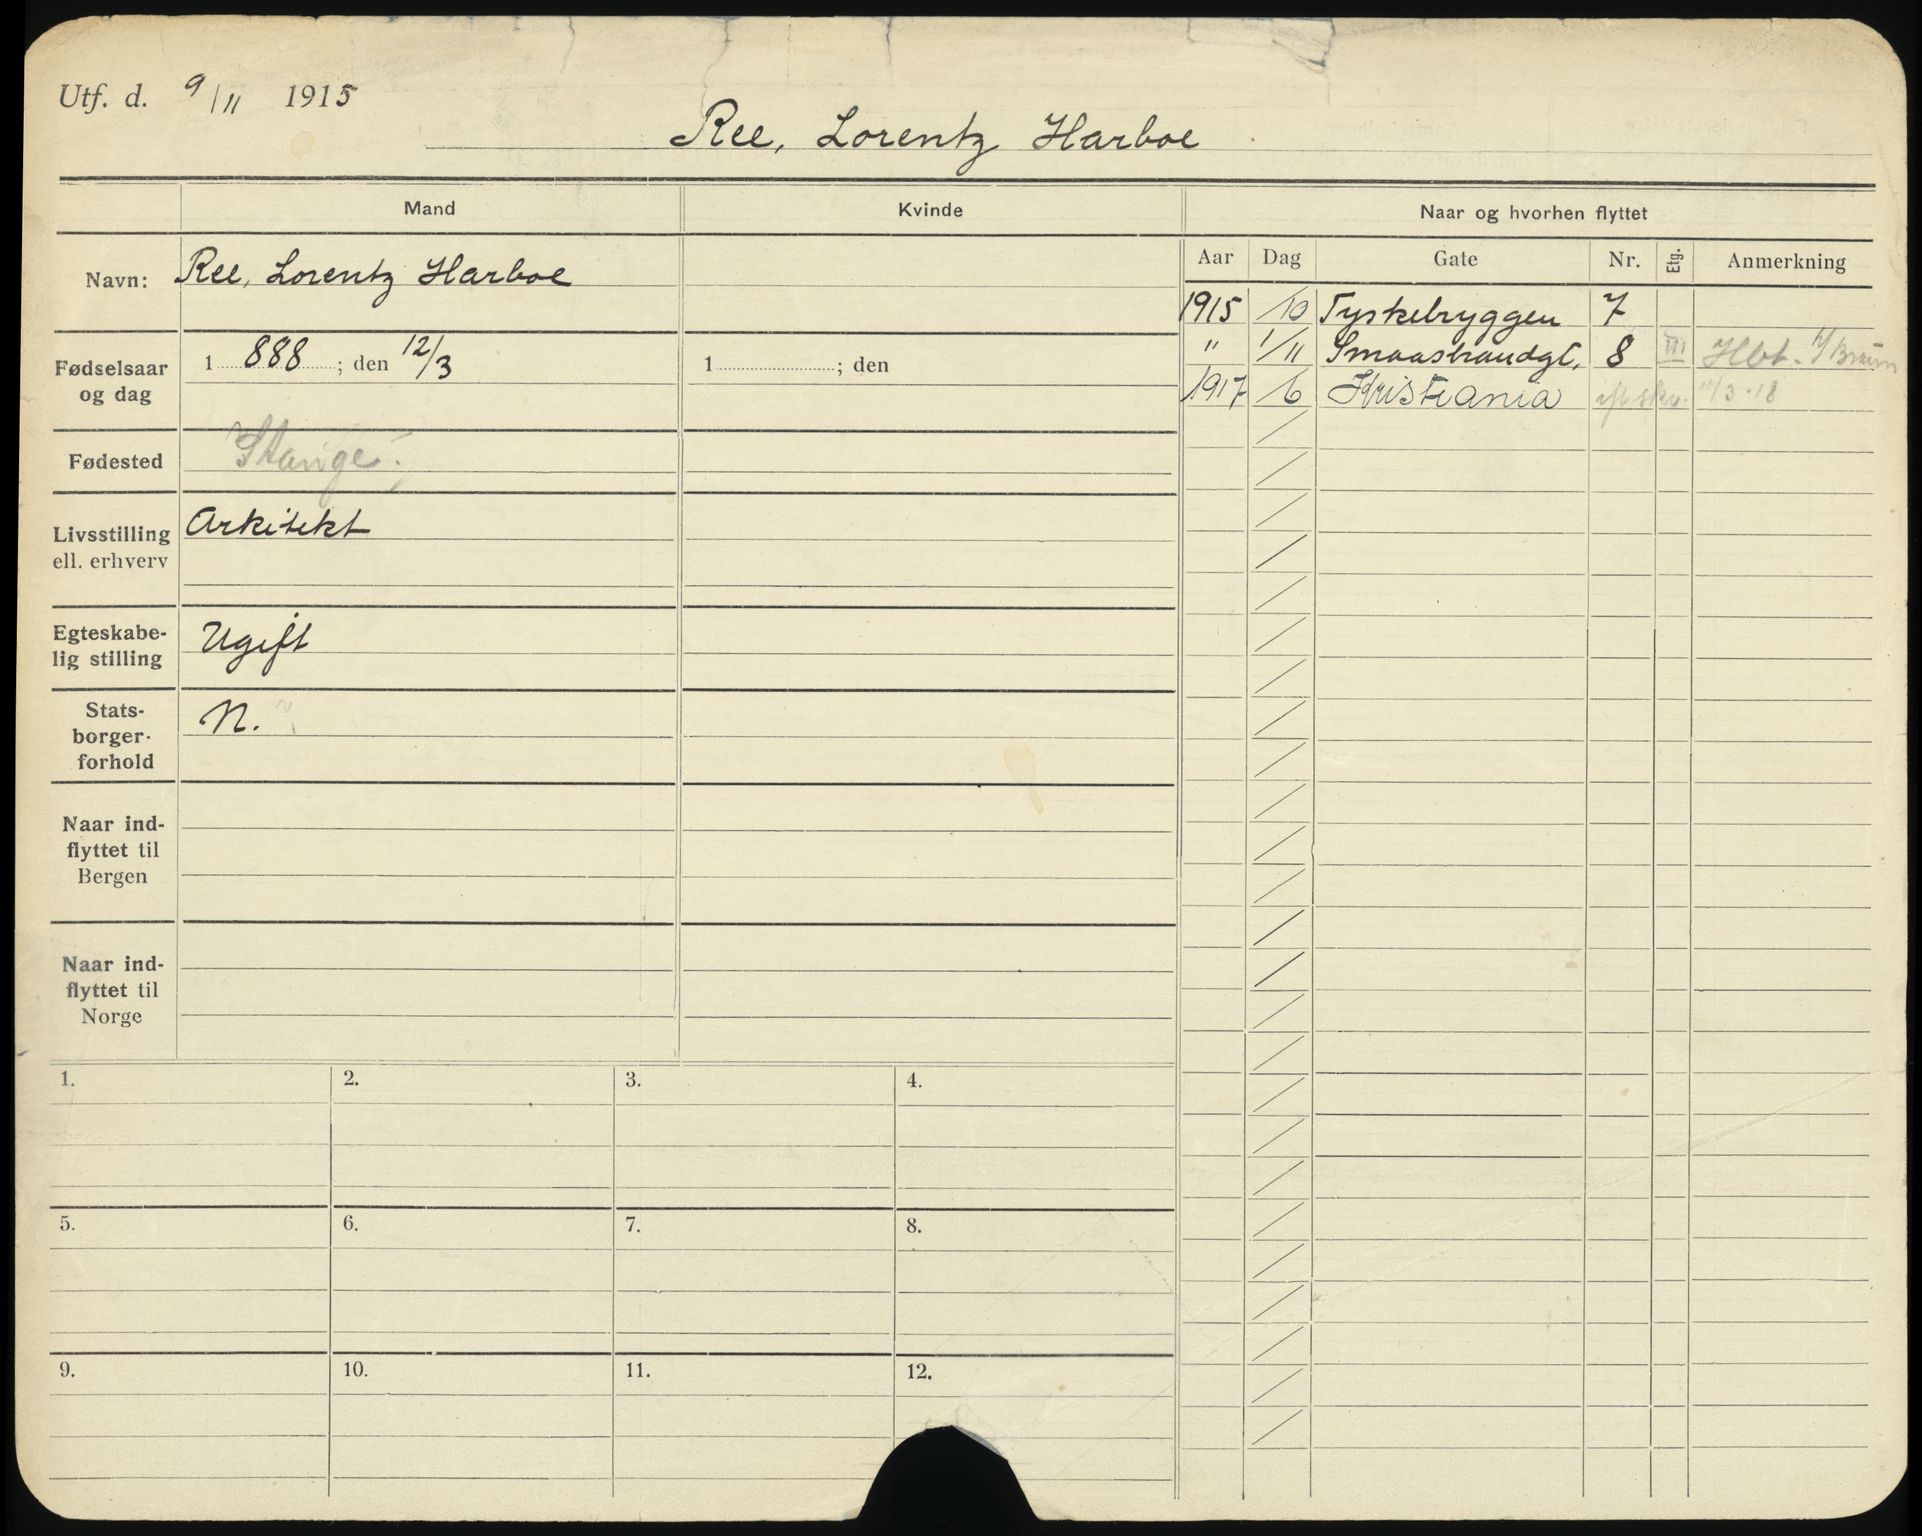 Utf. d. 9/11 1915
Ree, Lorentz Harboe
Mand
Kvinde
Naar og hvorhen flyttet
Navn: Ree, Lorentz Harboe
Fødselsaar og dag 1 888 ; den 12/3
1 ; den
Fødested Stange.
Livsstilling ell. erhverv Arkitekt
Egteskabe-
lig stilling Ugift
Stats-
borger-
forhold N.
Naar ind-
flyttet til
Bergen
Naar ind-
flyttet til
Norge
Aar Dag Gate Nr. Etg. Anmerkning
1915 /10 Tyskebryggen 7
" 1/11 Smaastrandgt. 8 III Hbt.
1917 /6 Kristiania ifl. skv. 11/3-18
1. 2. 3. 4.
5. 6. 7. 8.
9. 10. 11. 12.